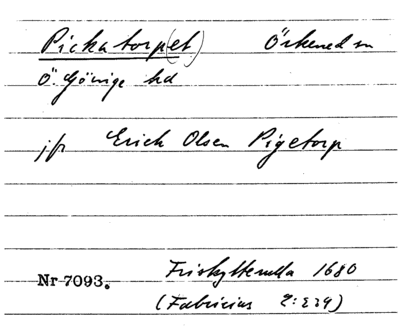 Pickatorp(et) Örkened sn
Ö. Göinge hd
jfr Erich Olsen Pigetorp
Friskytterulla 1680
Nr 7093.
(Fabricius 2:239)